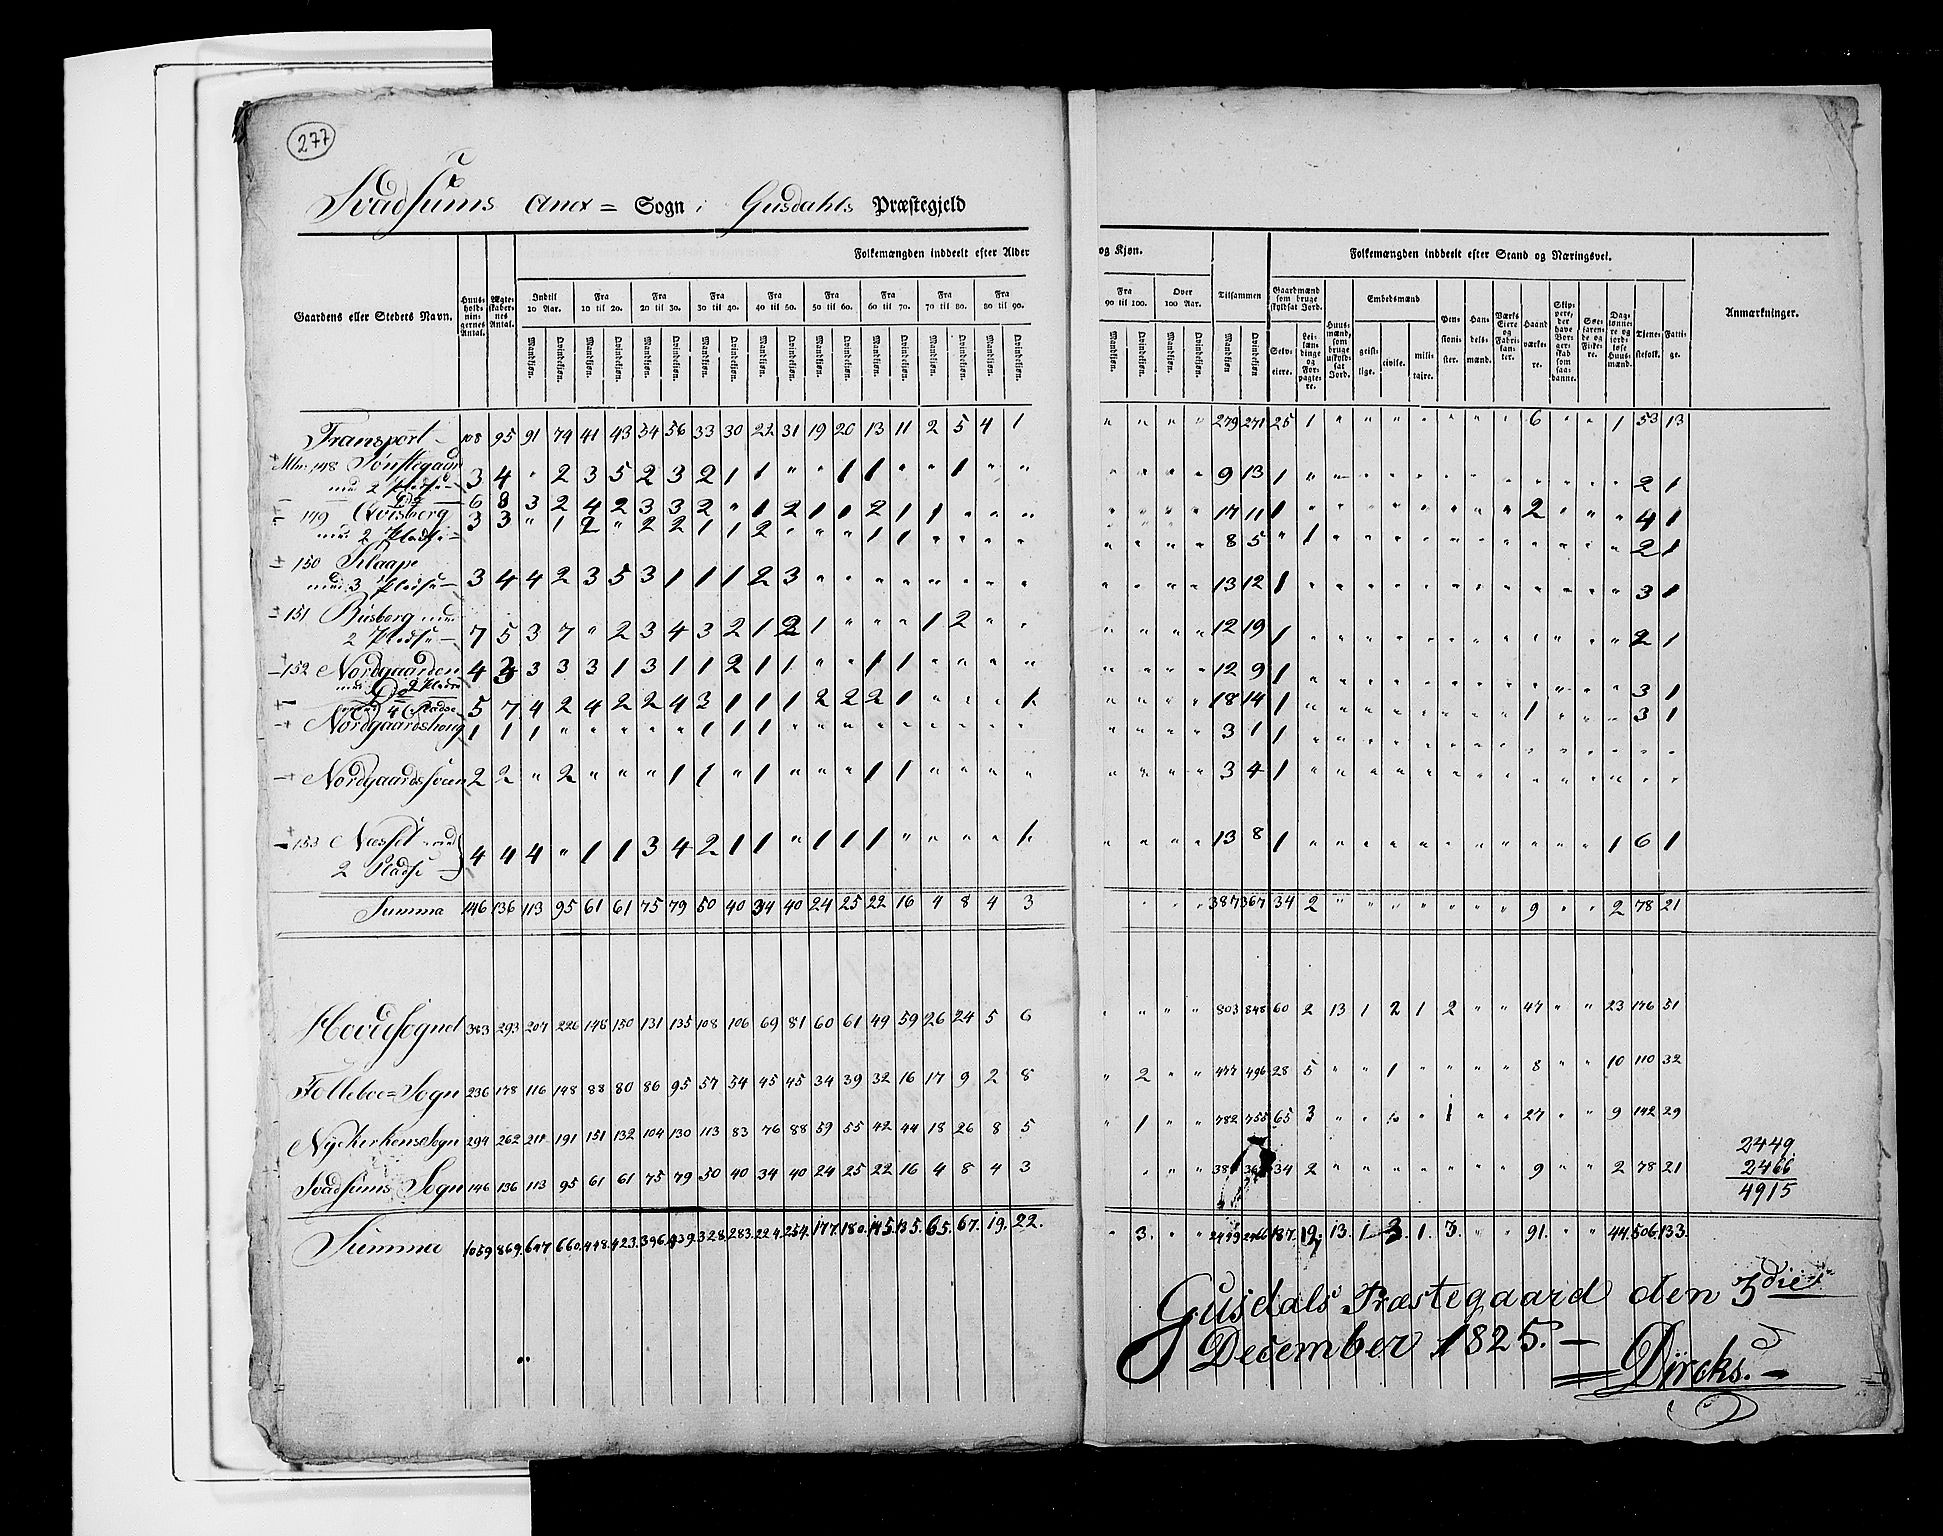 277
Svadsums Anex = Sogn i Gusdahls Præstegjeld
Gaardens eller Stedets Navn.
Huusholdningernes Antal.
Ægteskabernes Antal.
Folkemængden inddeelt efter Alder og Kjøn.
Indtil 10 Aar.
Fra 10 til 20.
Fra 20 til 30.
Fra 30 til 40.
Fra 40 til 50.
Fra 50 til 60.
Fra 60 til 70.
Fra 70 til 80.
Fra 80 til 90.
Fra 90 til 100.
Over 100 Aar.
Tilsammen
Mandkjøn. Qvindekjøn.
Folkemængden inddeelt efter Stand og Næringsvei.
Gaardmænd som bruge skyldsat Jord.
Selveiere.
Leilændinge og Forpagtere.
Huusmænd, som bruge uskyldsat Jord.
Embedsmænd
geistlige. civile. militaire.
Pensionister.
Handelsmænd.
Værks Eiere og Fabrikanter.
Haandværkere.
Skippere, der have Borgerskab som saadanne.
Søefarende og Fiskere.
Daglønnere og jordløse Huusmænd.
Tjenestefolk.
Fattige.
Anmærkninger.
Transport 108 95 91 74 41 43 34 56 33 30 22 31 19 20 13 11 2 5 4 1 " " " " 279 271 25 1 " " " " " " " 6 " " 1 53 13
148 Tønstegaard med 2 Pladse 3 4 " 2 3 5 2 3 2 1 1 " " 1 1 " " 1 " " " " " " 9 13 1 " " " " " " " " " " " " 2 1
Do 6 8 3 2 4 2 3 3 2 " 1 2 1 1 2 1 1 " " " " " " " 17 11 1 " " " " " " " " 2 " " " 4 1
149 Qvisberg med 2 Pladse 3 3 " 1 2 " 2 2 1 1 2 " " " 1 1 " " " " " " " " 8 5 " 1 " " " " " " " " " " " 2 1
150 Klaape med 3 Pladse 3 4 4 2 3 5 3 1 1 1 2 3 " " " " " " " " " " " " 13 12 1 " " " " " " " " " " " " 3 1
151 Busberg med 2 Pladse 7 5 3 7 " 2 3 4 3 2 1 2 1 " " " 1 2 " " " " " " 12 19 1 " " " " " " " " " " " " 2 1
152 Nordgaarden med 2 Pladse 4 3 3 3 3 1 3 1 1 2 1 1 " " 1 1 " " " " " " " " 12 9 1 " " " " " " " " " " " " 3 1
Do med 4 Pladse 5 7 4 2 4 2 2 4 3 1 1 1 2 2 2 1 " " " 1 " " " " 18 14 1 " " " " " " " " 1 " " " 3 1
Nordgaardshoug 1 1 1 " " " " " 1 1 1 " " " " " " " " " " " " " 3 1 1 " " " " " " " " " " " " " "
Nordgaardssveen 2 2 " 2 " " " 1 1 " 1 " " " 1 1 " " " " " " " " 3 4 1 " " " " " " " " " " " " " "
153 Næsset med 2 Pladse 4 4 4 " 1 1 3 4 2 1 1 " 1 1 1 " " " " 1 " " " " 13 8 1 " " " " " " " " " " " 1 6 1
Summa 146 136 113 95 61 61 75 79 50 40 34 40 24 25 22 16 4 8 4 3 " " " 387 367 34 2 " " " " " " " 9 " " 2 78 21
Hovedsognet 383 293 207 226 148 150 131 135 108 106 69 81 60 61 49 59 26 24 5 6 " " " " 803 848 60 2 13 1 2 1 2 " " 47 " " 23 176 51
Folleboe = Sogn 236 178 116 148 88 80 86 95 57 54 45 45 34 39 32 16 17 9 2 8 " 2 " " 477 496 28 5 " " 1 " " " " 8 " " 10 110 32
Nykirkens Sogn 294 262 211 191 151 132 104 130 113 83 76 88 59 55 42 44 18 26 8 5 " 1 " " 782 755 65 3 " " " 1 " " 27 " " 9 142 29
Svadsums Sogn 146 136 113 95 61 61 75 79 50 40 34 40 24 25 22 16 4 8 4 3 " " " 34 2 " " " " " " " 9 " " 2 78 21
2449
2466
4915
Summa 1059 869. 647 660. 448. 423. 396. 439. 328. 283. 224. 254. 177. 180. 145. 135. 65. 67. 19. 22. " 3. " " 2449 2466 187. 12. 13. 1 3. 1. 3. " " 91. " " 44. 506. 133.
Gusdals Præstegaard den 3die
December 1825. —
Dircks. —